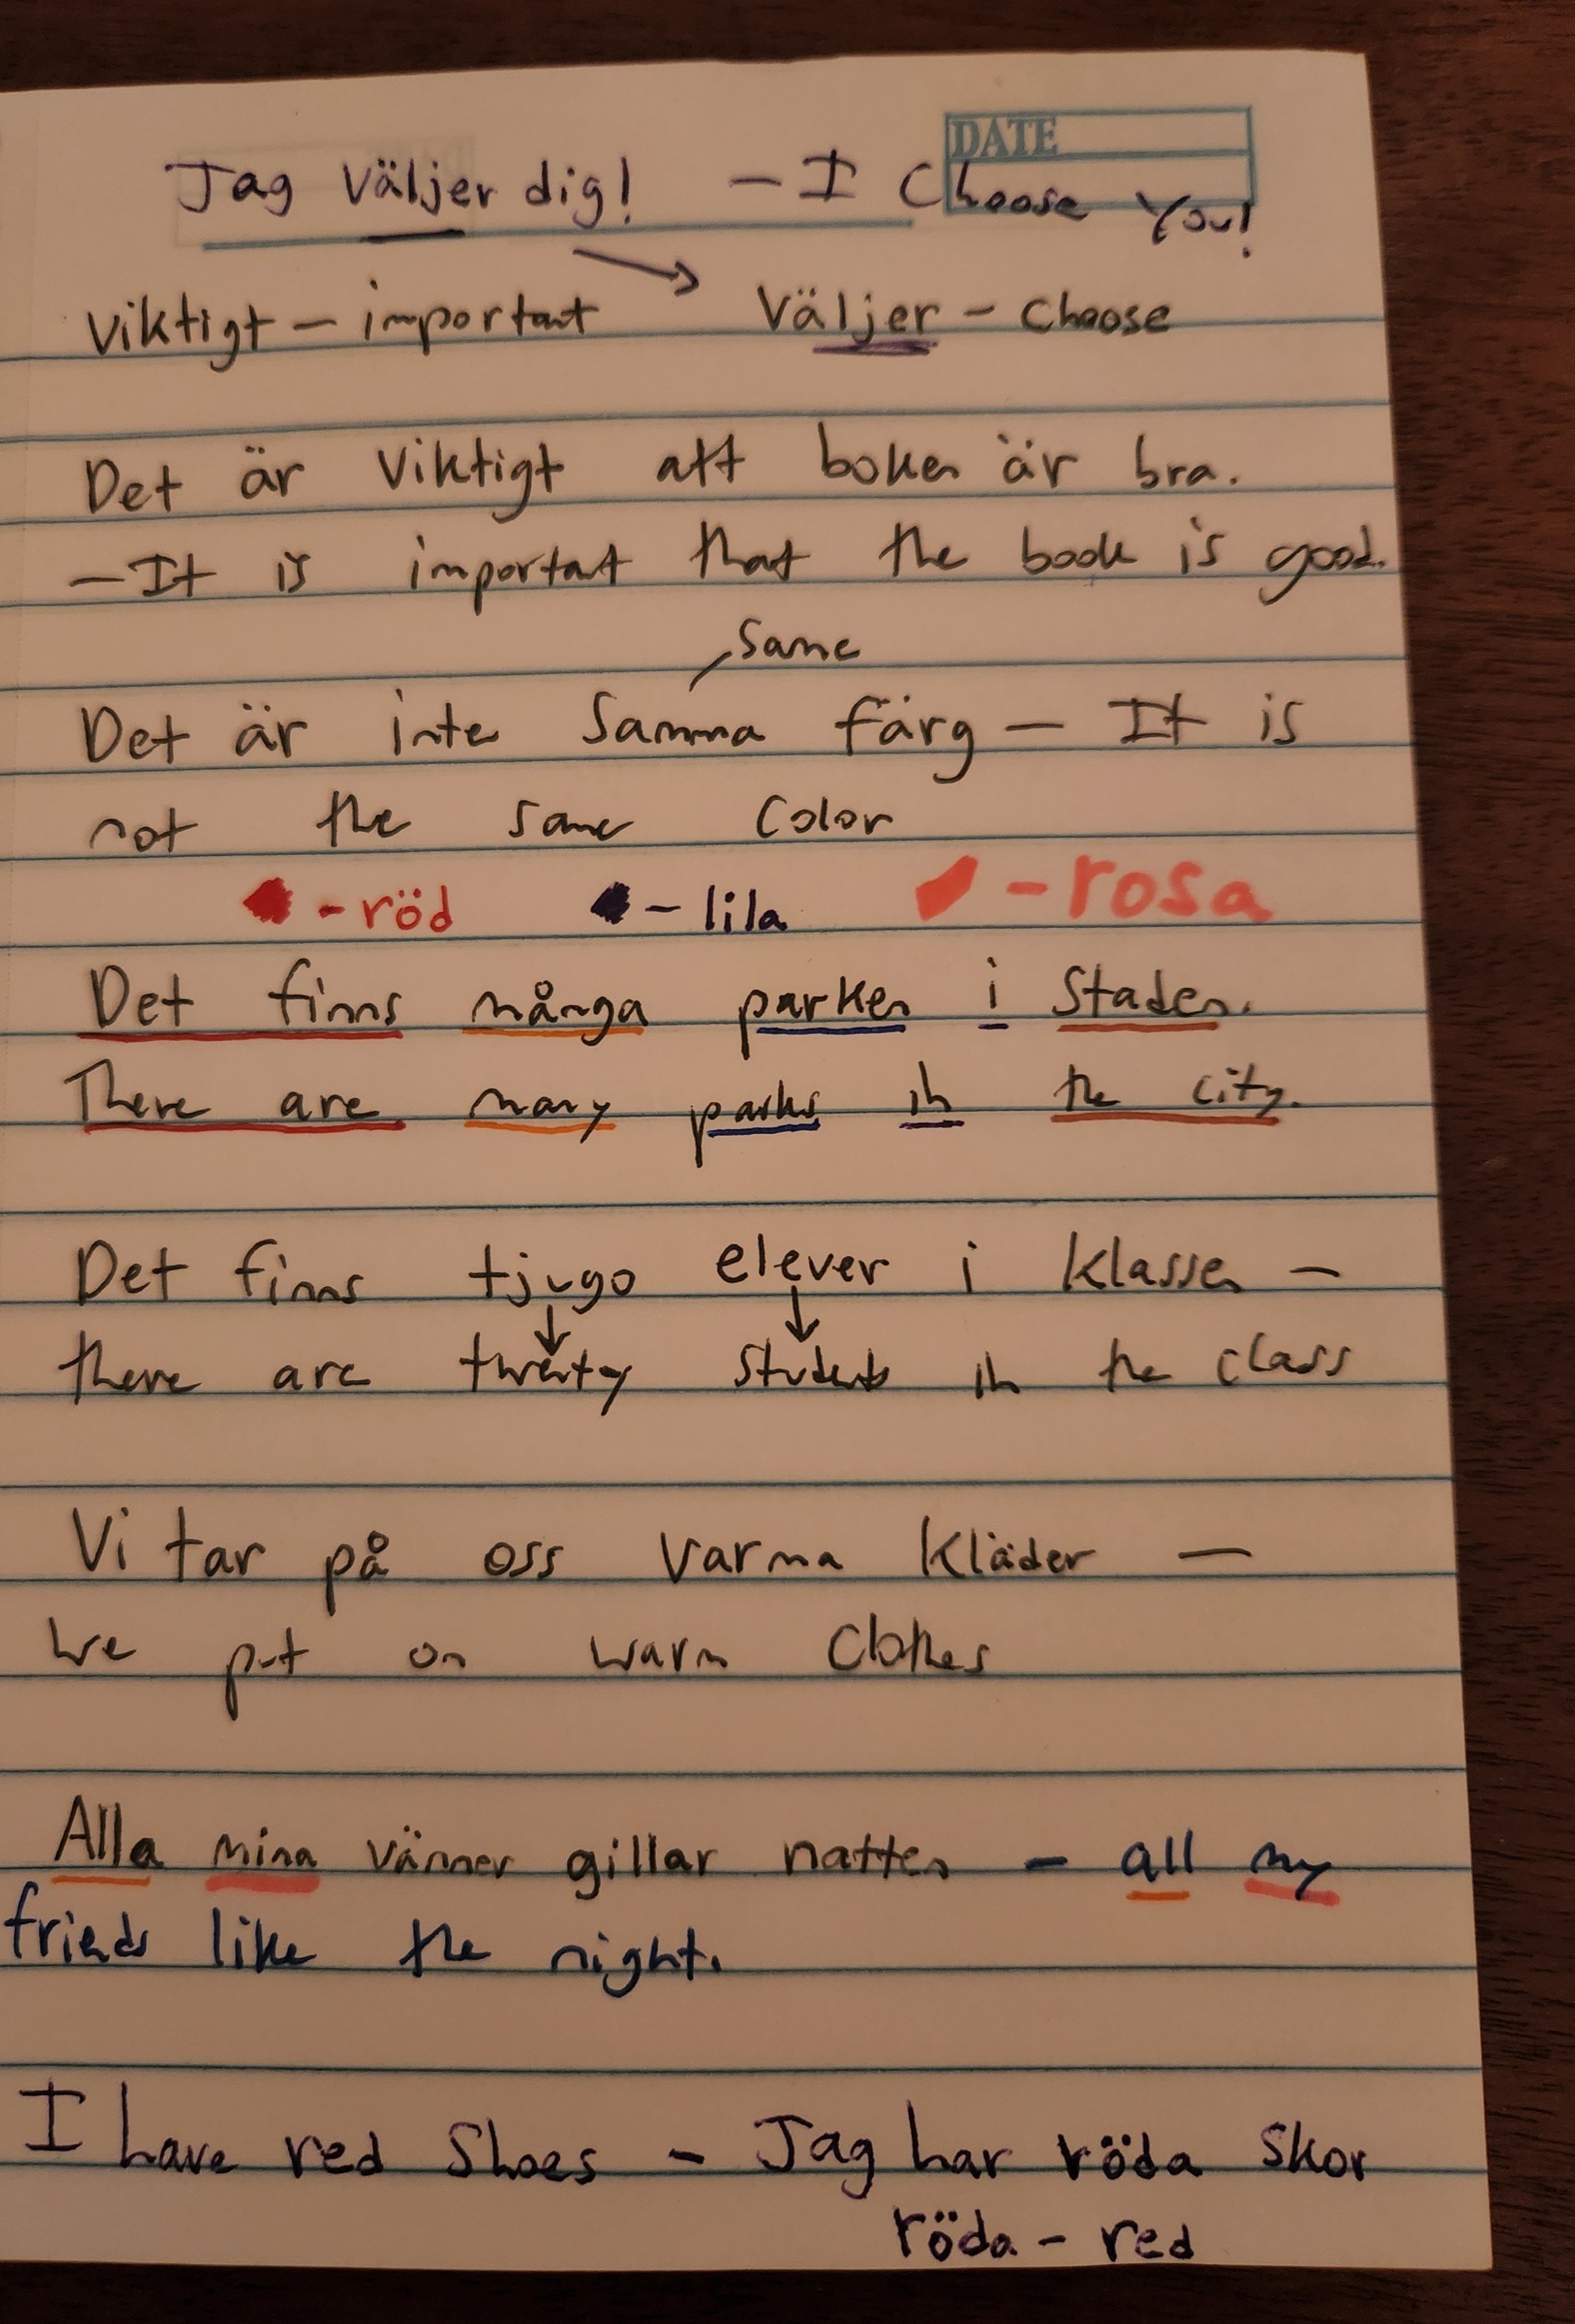 DATE
Jag Väljer dig! — I Choose You!
Viktigt — important Väljer — Choose
Det är Viktigt att boken är bra.
— It is important that the book is good.
Same
Det är inte Samma färg — It is
not the same Color
- röd - lila - rosa
Det finns många parker i Staden.
There are many parks in the city.
Det finns tjugo elever i Klassen —
there are twenty Students in the class
Vi tar på oss varma Kläder —
We put on warm Clothes
Alla mina vänner gillar natten — all my
friends like the night.
I have red Shoes - Jag har röda Skor
röda - red